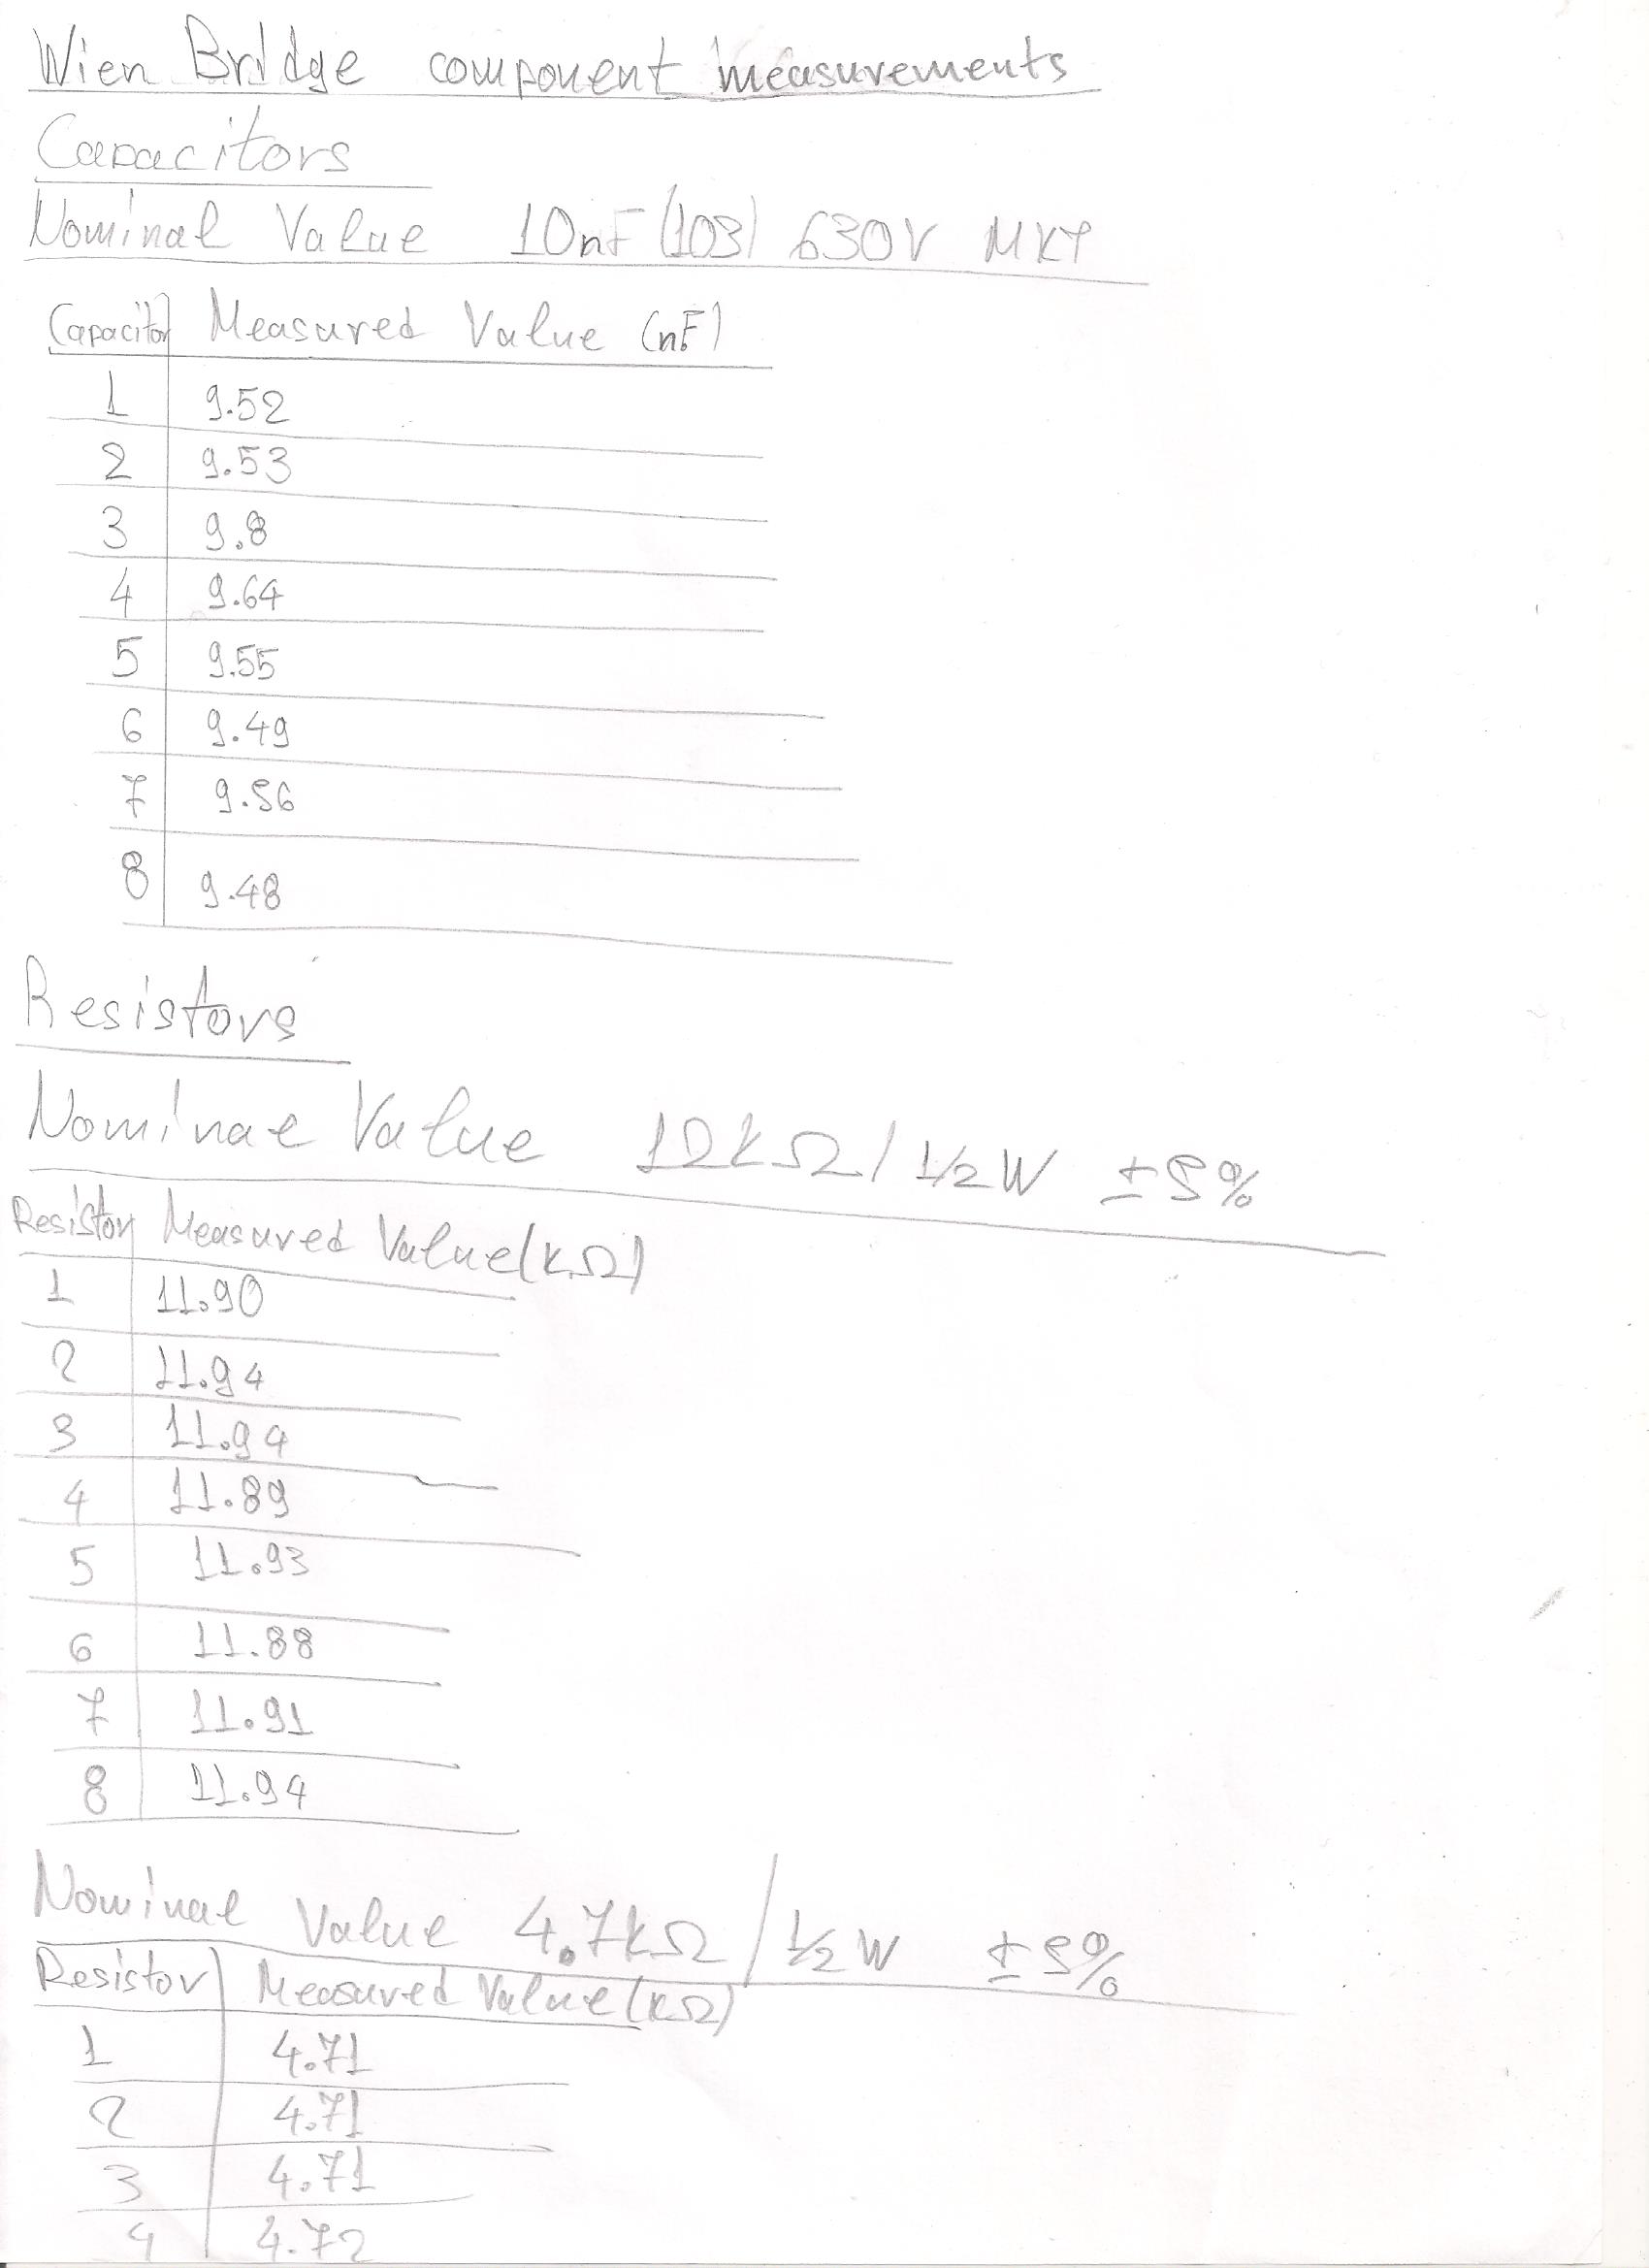 Wien Bridge component measurements
Capacitors
Nominal Value 10nF (103) 630V MKT
Capacitor Measured Value (nF)
1 9.52
2 9.53
3 9.8
4 9.64
5 9.55
6 9.49
7 9.56
8 9.48
Resistors
Nominal Value 12kΩ/ 1/2W ±5%
Resistor Measured Value(kΩ)
1 11.90
2 11.94
3 11.94
4 11.89
5 11.93
6 11.88
7 11.91
8 11.94
Nominal Value 4.7kΩ/ 1/2W ±5%
Resistor Measured Value(kΩ)
1 4.71
2 4.71
3 4.71
4 4.72